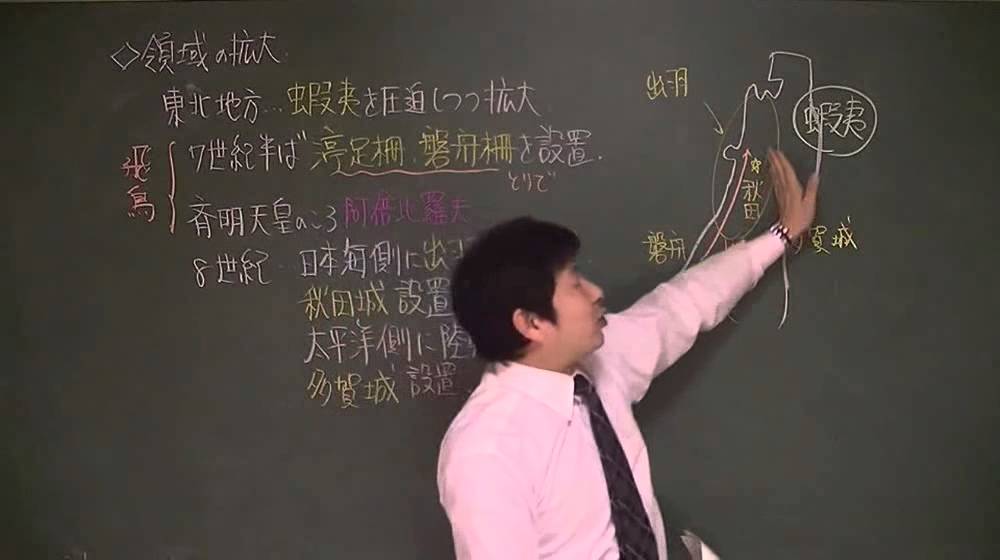 ◇領域の拡大
東北地方…蝦夷を圧迫しつつ拡大
飛鳥
7世紀半ば 渟足柵、磐舟柵を設置.
とりで
斉明天皇のころ 阿倍比羅夫
8世紀…日本海側に出羽
秋田城 設置
太平洋側に陸
多賀城 設置.
出羽
蝦夷
秋田
磐舟
賀城